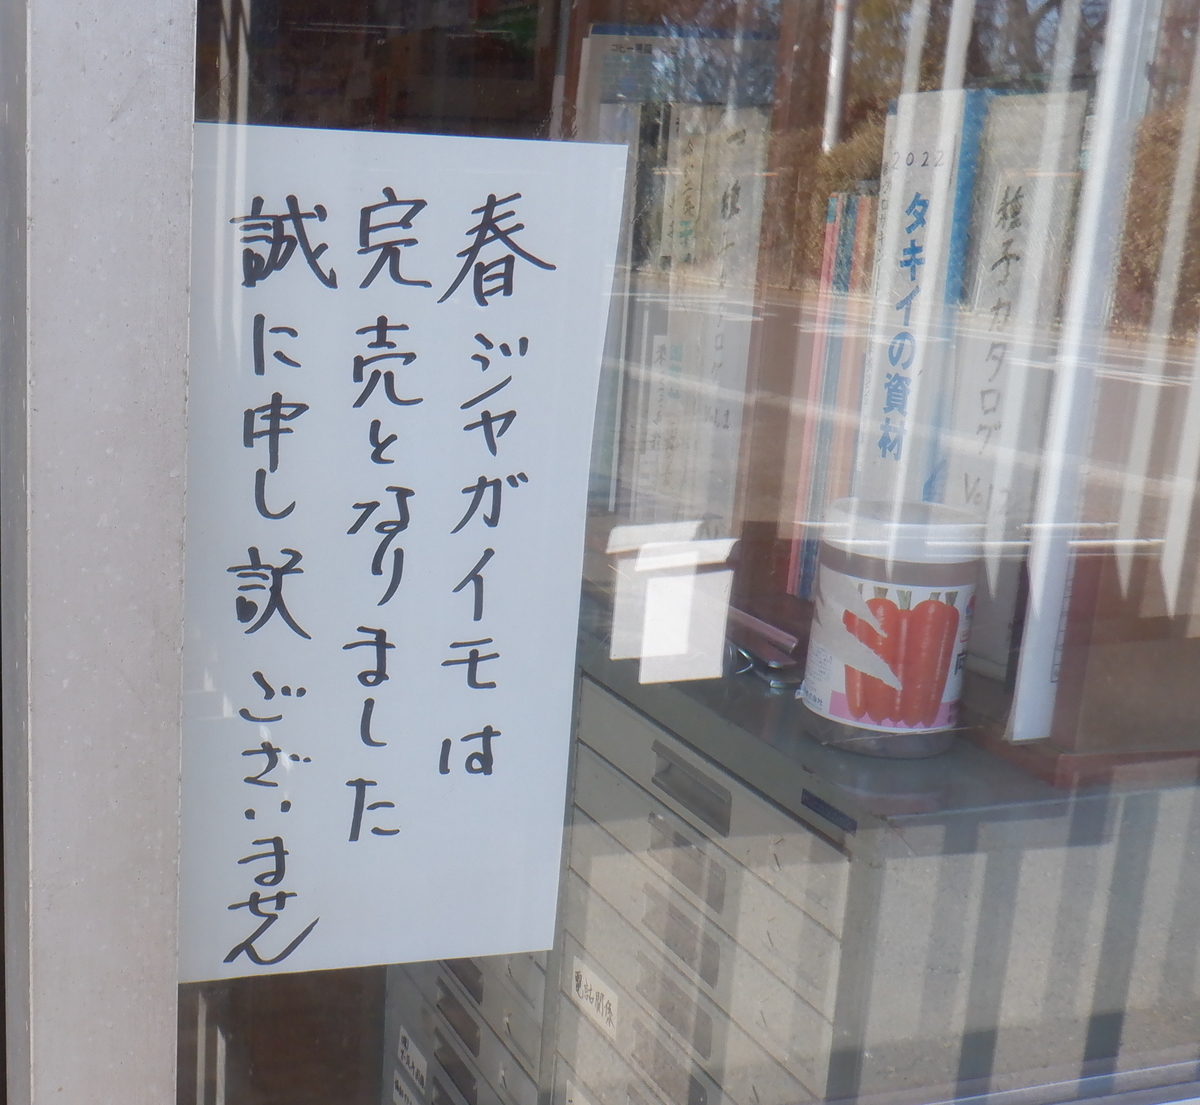 春ジャガイモは
完売となりました
誠に申し訳ございません
コピー用紙
2022
タキイの資材
種子カタログ
電話関係